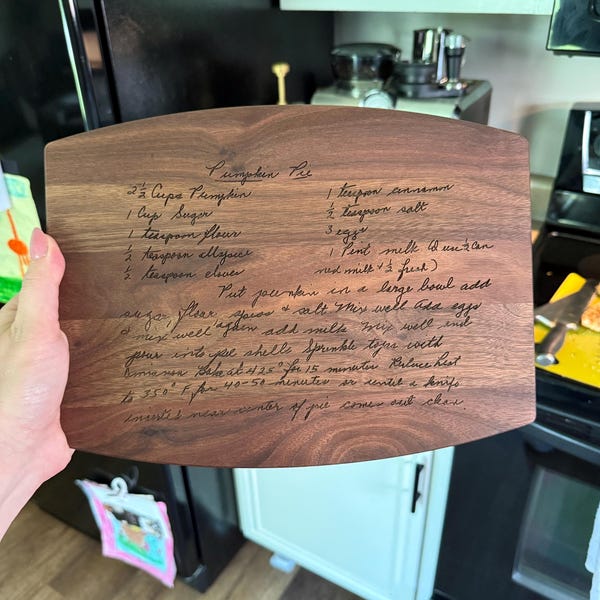 Pumpkin Pie
2½ Cups Pumpkin
1 Cup Sugar
1 teaspoon flour
½ teaspoon allspice
½ teaspoon cloves
1 teaspoon cinnamon
½ teaspoon salt
3 eggs
1 Pint milk (I use ½ Can
milk & ½ fresh)
Put pumpkin in a large bowl add
sugar flour spices & salt Mix well Add eggs
& mix well again add milk Mix well and
pour into pie shells Sprinkle tops with
Cinnamon Bake at 425° for 15 minutes Reduce heat
to 350° F. for 40-50 minutes or until a knife
inserted near center of pie comes out clean.